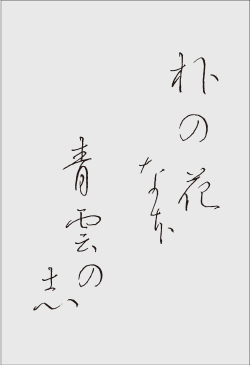 朴の花
なほ
青雲の
志